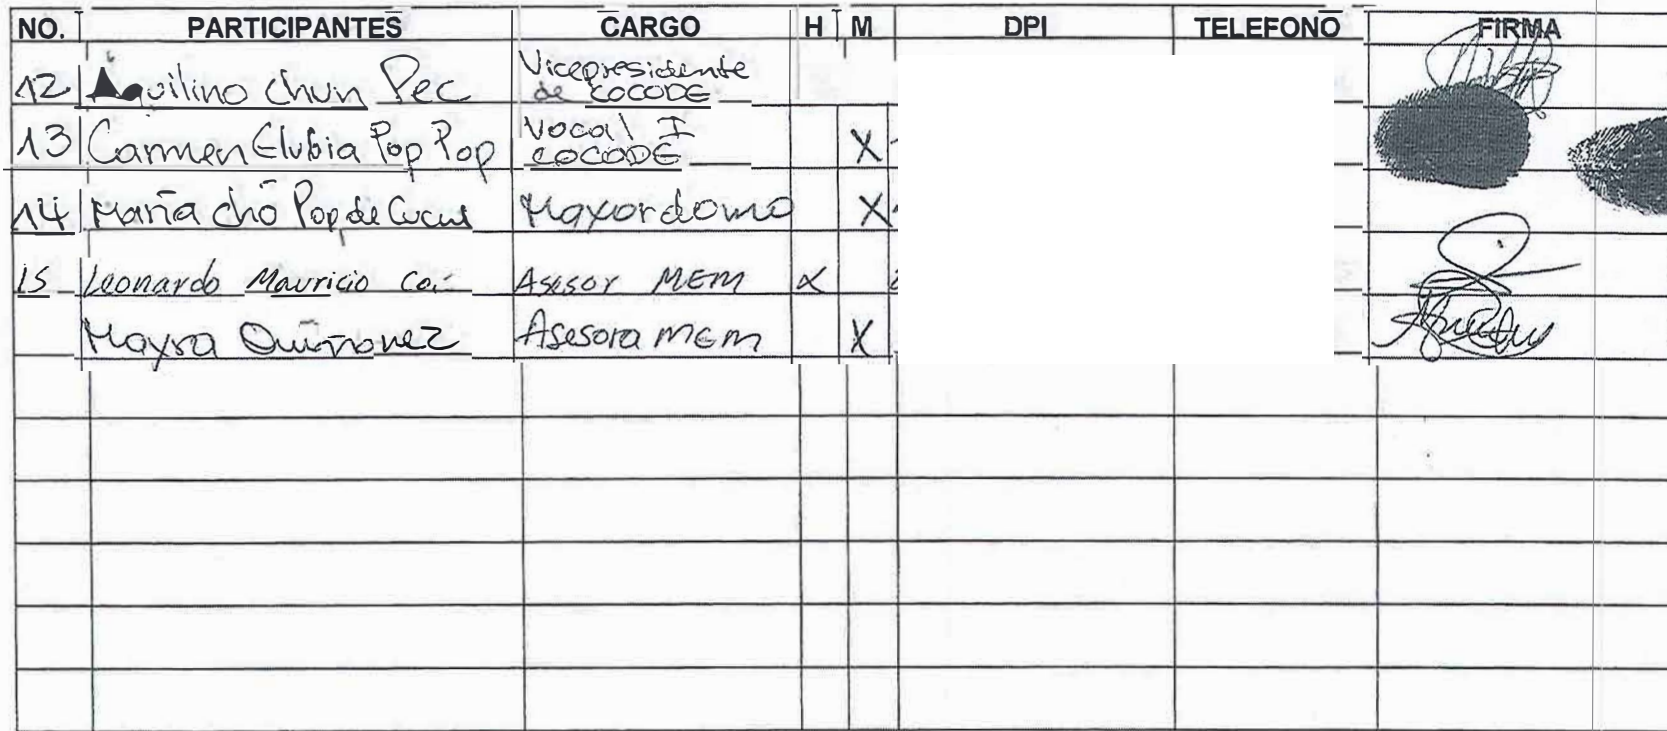 NO. PARTICIPANTES CARGO H M DPI TELEFONO FIRMA
12 Aquilino Chun Pec Vicepresidente de COCODE
13 Carmen Elubia Pop Pop Vocal I COCODE X
14 Maria Cho Pop de Cucul Mayordomo X
15 Leonardo Mauricio Asesor MEM X
Mayra Quiñonez Asesora MEM X